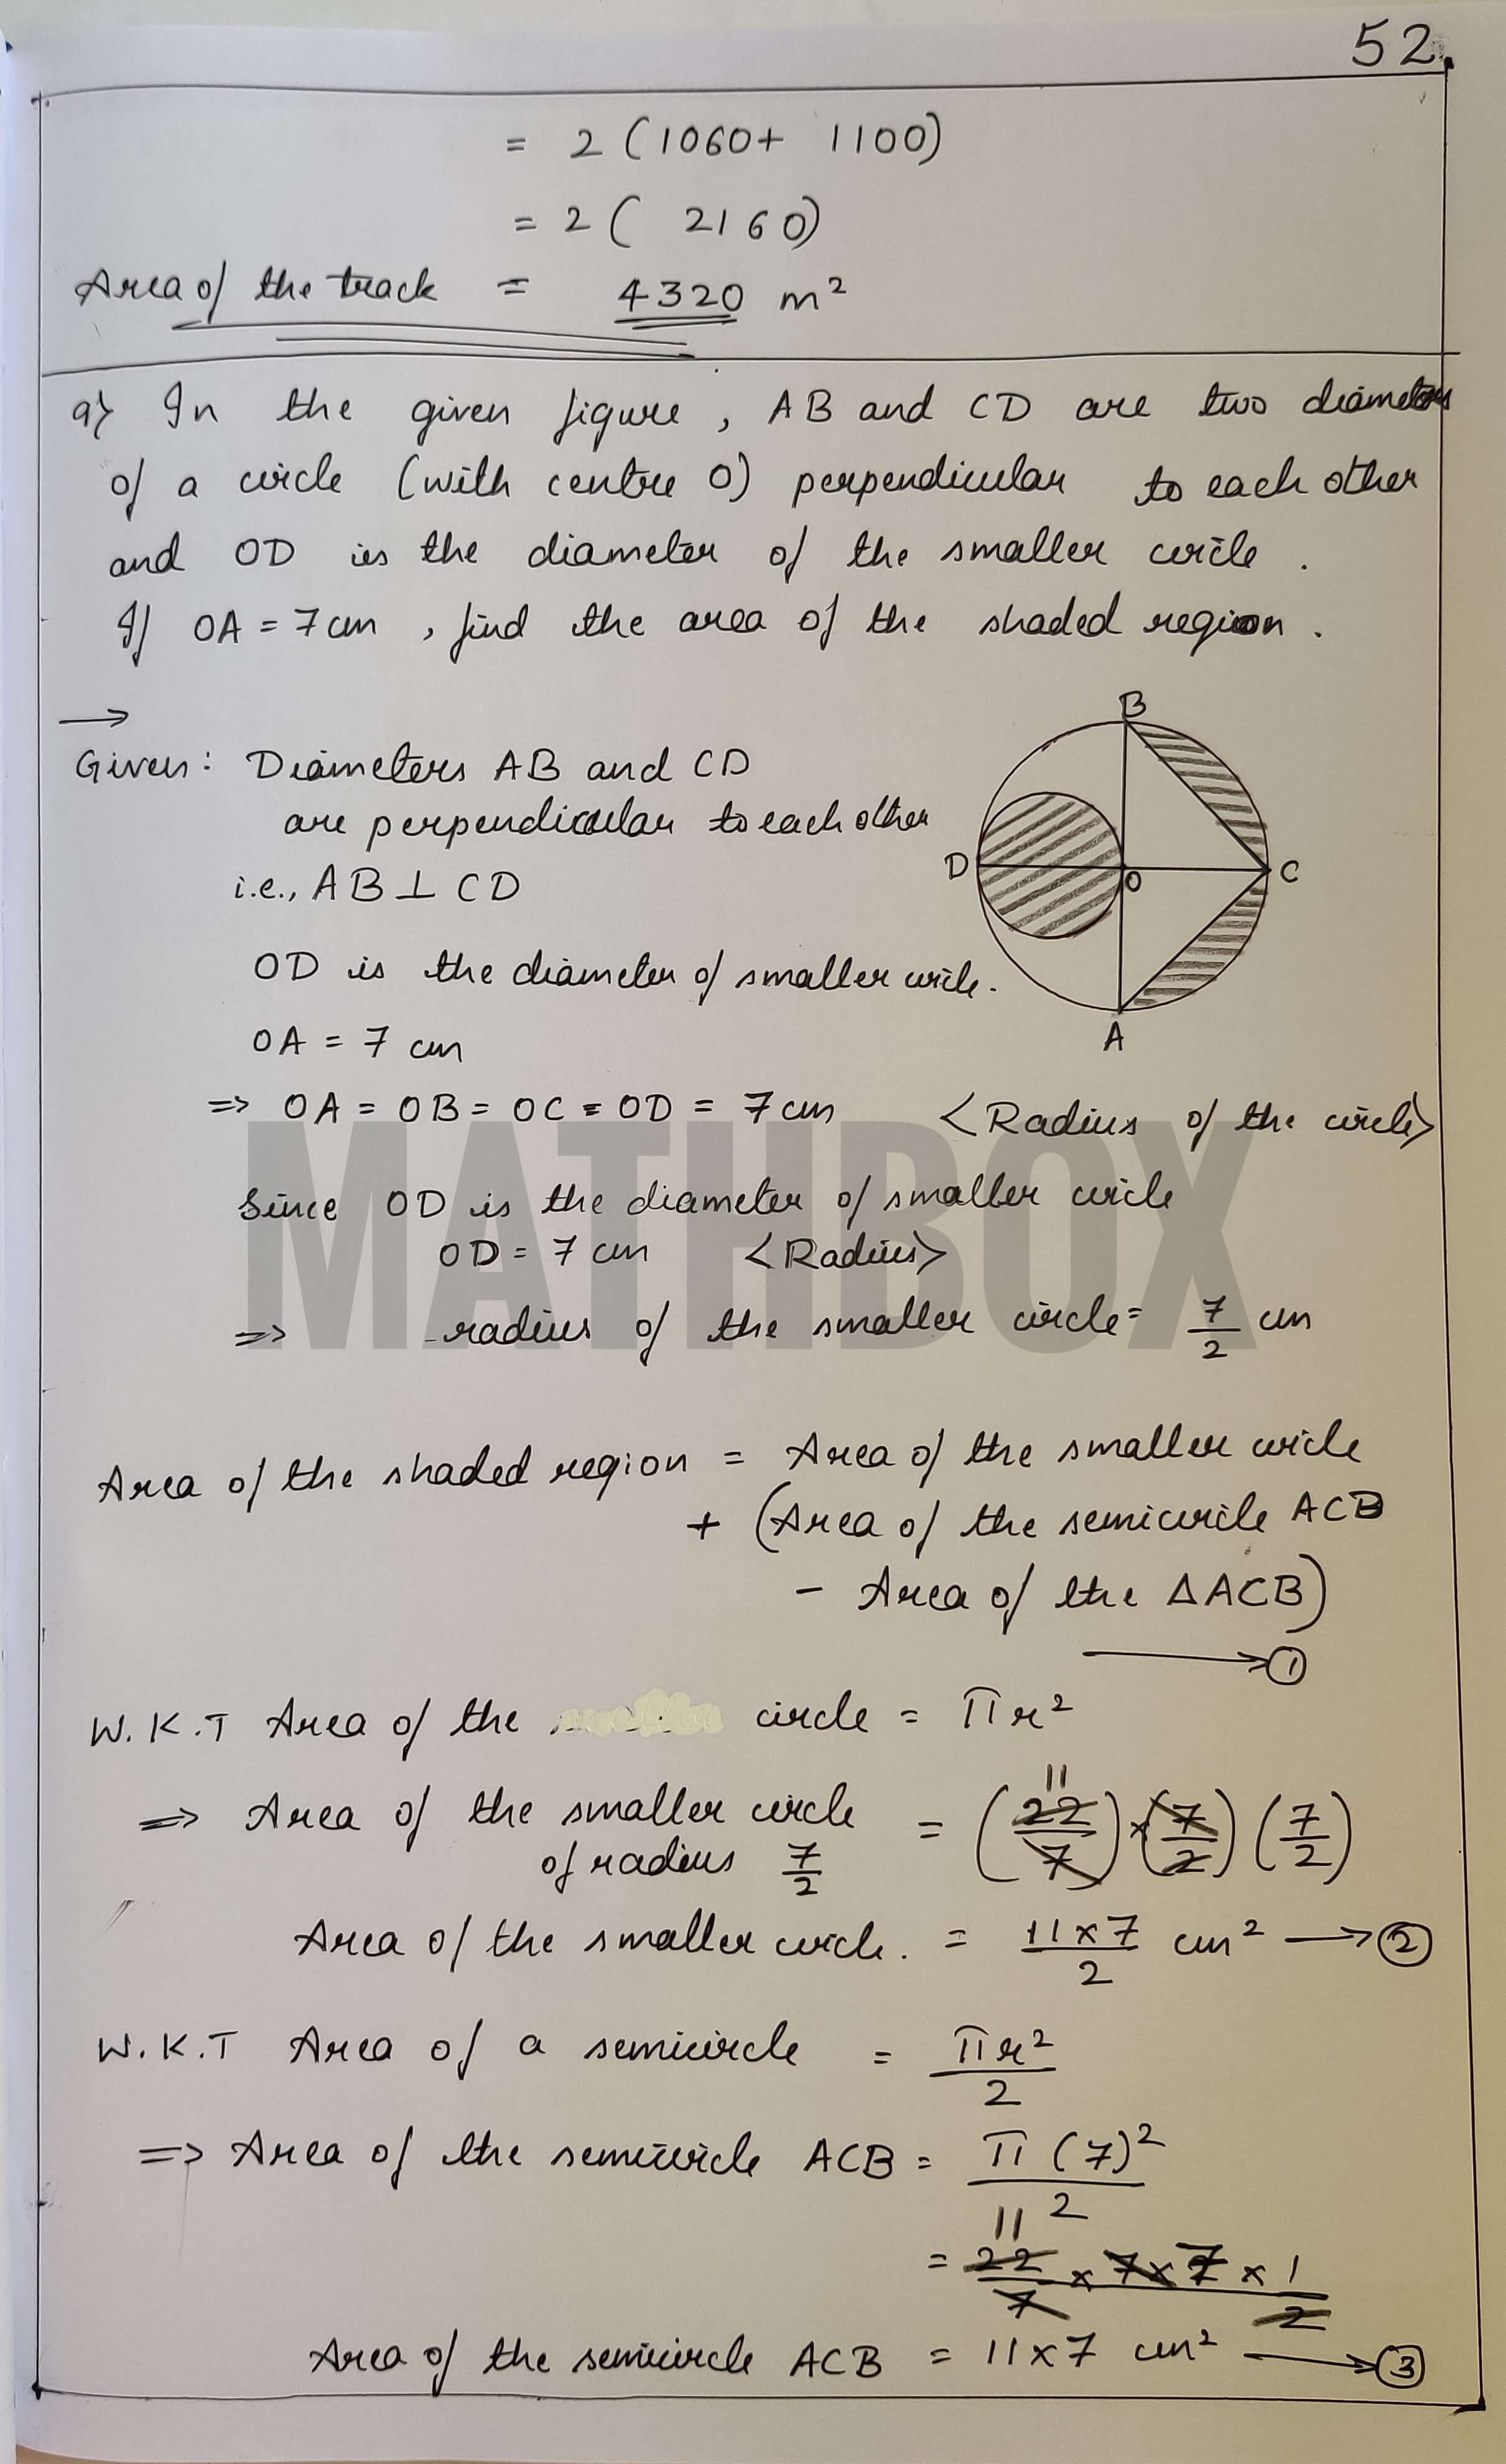 52.
= 2 (1060+ 1100)
= 2 ( 2160)
Area of the track = 4320 m²
9) In the given figure, AB and CD are two diameters
of a circle (with centre O) perpendicular to each other
and OD is the diameter of the smaller circle.
If OA = 7 cm, find the area of the shaded region.
→
Given: Diameters AB and CD
are perpendicular to each other
i.e., AB ⊥ CD
OD is the diameter of smaller circle.
OA = 7 cm
B
D
O
C
A
⇒ OA = OB = OC = OD = 7 cm <Radius of the circle>
MATHBOX
Since OD is the diameter of smaller circle
OD = 7 cm <Radius>
⇒ radius of the smaller circle = 7/2 cm
Area of the shaded region = Area of the smaller circle
+ (Area of the semicircle ACB
- Area of the ΔACB)
→ ①
W.K.T Area of the circle = πr²
⇒ Area of the smaller circle of radius 7/2 = (22/7) × (7/2) (7/2)
11
Area of the smaller circle. = 11×7/2 cm² → ②
W.K.T Area of a semicircle = πr²/2
⇒ Area of the semicircle ACB = π (7)²/2
11
= 22/7 × 7 × 7 × 1/2
Area of the semicircle ACB = 11×7 cm² → ③